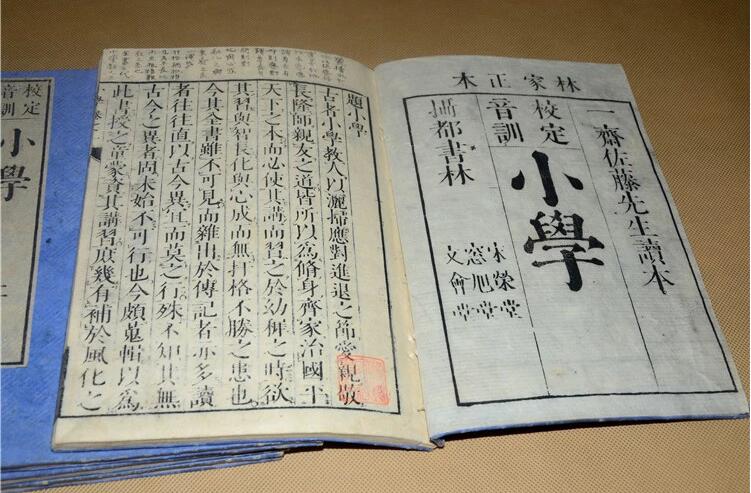 林家正本
一齋佐藤先生讀本
校定
音訓
小學
宋榮堂
窓旭堂
文會堂
攝都書林
題小學
古者小學教人以灑掃應對進退之節愛親敬
長隆師親友之道皆所以爲脩身齊家治國平
天下之本而必使其講而習之於幼穉之時欲
其習與智長化與心成而無扞格不勝之患也
今其全書雖不可見而雜出於傳記者亦多讀
者往往直以古今異宜而莫之行殊不知其無
古今之異者固未始不可行也今頗蒐輯以爲
此書授之童蒙資其講習庶幾有補於風化之
校定
音訓
小學